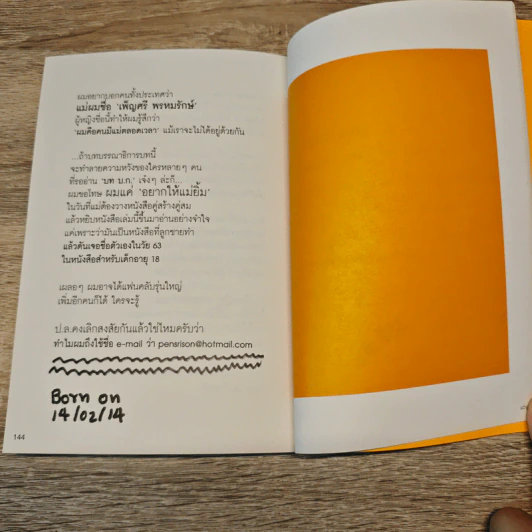 ผมอยากบอกคนทั้งประเทศว่า
แม่ผมชื่อ 'เพ็ญศรี พรหมรักษ์'
ผู้หญิงชื่อนี้ทำให้ผมรู้สึกว่า
'ผมคือคนมีแม่ตลอดเวลา' แม้เราจะไม่ได้อยู่ด้วยกัน
...ถ้าบทบรรณาธิการบทนี้
จะทำลายความหวังของใครหลายๆ คน
ที่รออ่าน 'บท บ.ก.' เจ๋งๆ ล่ะก็...
ผมขอโทษ ผมแค่ 'อยากให้แม่ยิ้ม'
ในวันที่แม่ต้องวางหนังสือคู่สร้างคู่สม
แล้วหยิบหนังสือเล่มนี้ขึ้นมาอ่านอย่างจำใจ
แค่เพราะว่ามันเป็นหนังสือที่ลูกชายทำ
แล้วดันเจอชื่อตัวเองในวัย 63
ในหนังสือสำหรับเด็กอายุ 18
เผลอๆ ผมอาจได้แฟนคลับรุ่นใหญ่
เพิ่มอีกคนก็ได้ ใครจะรู้
ป.ล.คงเลิกสงสัยกันแล้วใช่ไหมครับว่า
ทำไมผมถึงใช้ชื่อ e-mail ว่า pensrison@hotmail.com
Born on
14/02/14
144